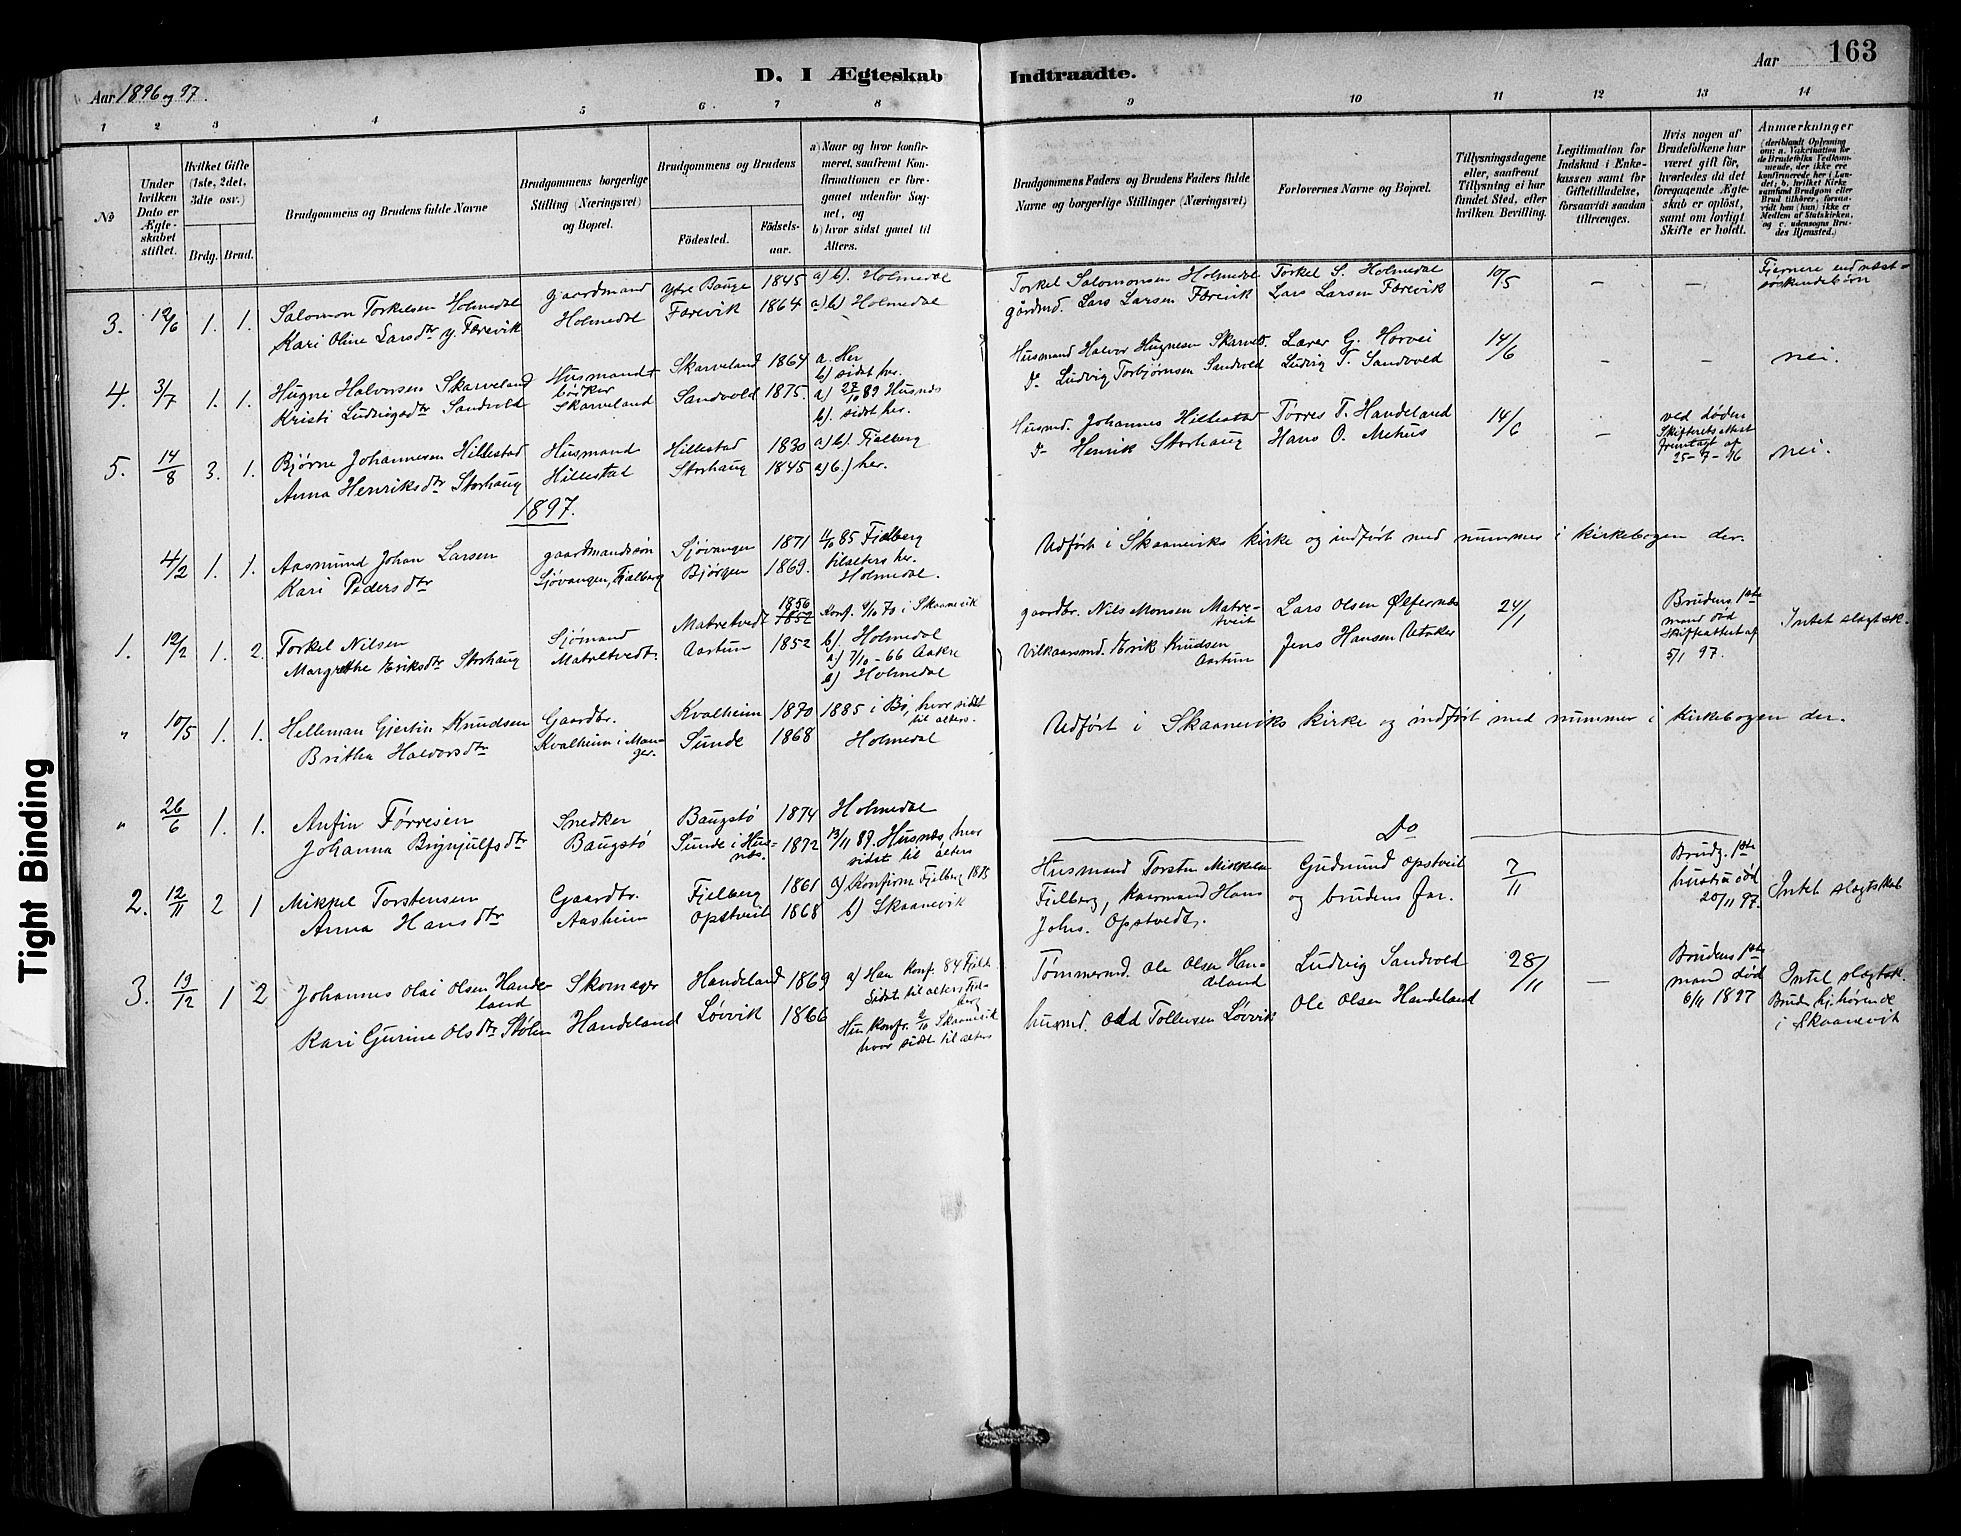 D. I Ægteskab Indtraadte.
Aar 163
Aar 1896 og 97.
1 2 3 4 5 6. 7 8 9 10 11 12 13 14
No
Under hvilken Dato er Ægteskabet stiftet.
Hvilket Gifte (1ste, 2det, 3die osv.)
Brdg. Brud.
Brudgommens og Brudens fulde Navne
Brudgommens borgerlige Stilling (Næringsvei) og Bopæl.
Brudgommens og Brudens
Fødested. Fødsels-aar.
a) Naar og hvor konfirmeret, saafremt Konfirmationen er foregaaet udenfor Sognet, og
b) hvor sidst gaaet til Alters.
Brudgommens Faders og Brudens Faders fulde Navne og borgerlige Stillinger (Næringsvei)
Forlovernes Navne og Bopæl.
Tillysningsdagene eller, saafremt Tillysning ei har fundet Sted, efter hvilken Bevilling.
Legitimation for Indskud i Enkekassen samt for Giftetilladelse, forsaavidt saadan tiltrænges.
Hvis nogen af Brudefolkene har været gift før, hvorledes da det foregaaende Ægteskab er opløst, samt om lovligt Skifte er holdt.
Anmærkninger (deriblandt Oplysning om: a. Vakcination for de Brudefolks Vedkommende, der ikke ere konfirmerede her i Landet; b. hvilket Kirkesamfund Brudgom eller Brud tilhører, forsaavidt han (hun) ikke er Medlem af Statskirken, og c. udensogns Brudes Hjemsted.)
3. 12/6 1. 1. Salomon Torkelsen Holmedal Gaardmand Ytre Bauge 1845 a) b). Holmedal Torkel Salomonsen Holmedal Torkel S. Holmedal 10/5 – – Fjernere end næst-
Kari Oline Larsdtr y. Færevik Holmedal Færevik 1864 a) b) Holmedal gårdmd. Lars Larsen Færevik Lars Larsen Færevik søskendebørn
4. 3/7 1. 1. Hugne Halvorsen Skarveland Husmand + Skarveland 1864 a. Her b) sidst her. Husmand Halvor Hugnesen Skarvel. Lærer G. Horvei 14/6 – – nei.
Kristi Ludvigsdtr Sandvold bøsker Skarveland Sandvold 1875. a) 27/10 89 Husnæs b). sidst her. Do Ludvig Torbjørnsen Sandvold Ludvig T. Sandvold
5. 14/8 3. 1. Bjørne Johannesen Hillestad Husmand Hillestad 1830 a) b). Fjelberg Husmd. Johannes Hillestad Torres T. Handeland 14/6 – ved døden Skifterets attest fremlagt af 25-7-96 nei.
Anna Henriksdtr Storhaug Hillestad Storhaug 1845 a) b.) her. Do Henrik Storhaug Hans O. Mehus
1897.
4/2 1. 1. Aasmund Johan Larsen gaardmandssøn Sjøvangen 1871 85 Fjelberg tilalters her. Udført i Skaaneviks kirke og indført med nummer i kirkebogen der.
Kari Pedersdtr Sjøvangen, Fjelberg Bjørgen 1869. Holmedal.
1. 12/2 1. 2. Torkel Nilsen Sjømand Matretvedt 1856 1852 Konf. 9/10 70 i Skaanevik b). Holmedal gaardbr. Nils Monsen Matre-tveit Lars Olsen Ølfernæs 24/1 Brudens 1ste mand død Skifteattest af 5/1 97. Intet slægtsk.
Margrethe Eriksdtr Storhaug Matretvedt. Aartun 1852 a) 7/10-66 Aakre b) Holmedal Vilkaarsmd. Erik Knudsen Aartun Jens Hansen Utaker
" 10/5 1. 1. Helleman Gjertin Knudsen Gaardbr. Kvalheim 1870 1885 i Bø, hvor sidst til alters. Udført i Skaaneviks kirke og indført med nummer i kirkebogen der.
Britha Halvorsdtr Kvalheim i Manger. Sunde 1868 Holmedal
" 26/6 1. 1. Anfin Tørresen Snedker Baugstø 1874 Holmedal Do
Johanna Brynjulfsdtr Baugstø Sunde i Husnæs. 1872 13/11 87. Husnæs, hvor sidst til alters
2. 12/11 2 1 Mikkel Torstensen Gaardbr. Fjelberg 1861 a) Konfirm. Fjelberg 1875 Husmand Torsten Mikkelsen Gudmund Opstveit 7/11 Brudg. 1ste hustru død 20/11 97. Intet slægtskab
Anna Hansdtr Aasheim Opstveit 1868 b) Skaanevik Fjelberg, Kaarmand Hans Johs. Opstvedt. og brudens far.
3. 19/12 1 2 Johannes Olai Olsen Handeland Skomager Handeland 1869 a) Han Konf. 84 Fjelb. sidst til alters Fjelberg Tømmermd. Ole Olsen Handeland Ludvig Sandvold 28/11 – Brudens 1ste mand død 6/11 1897 Intet slægtsk. Brud hj.hørende i Skaanevik
Kari Gurine Olsdtr Stølen Handeland Løvvik 1866 Hun konfr. 2/10 Skaanevik hvor sidst til alters husmd. Odd Tollevsen Løvvik Ole Olsen Handeland
Tight Binding